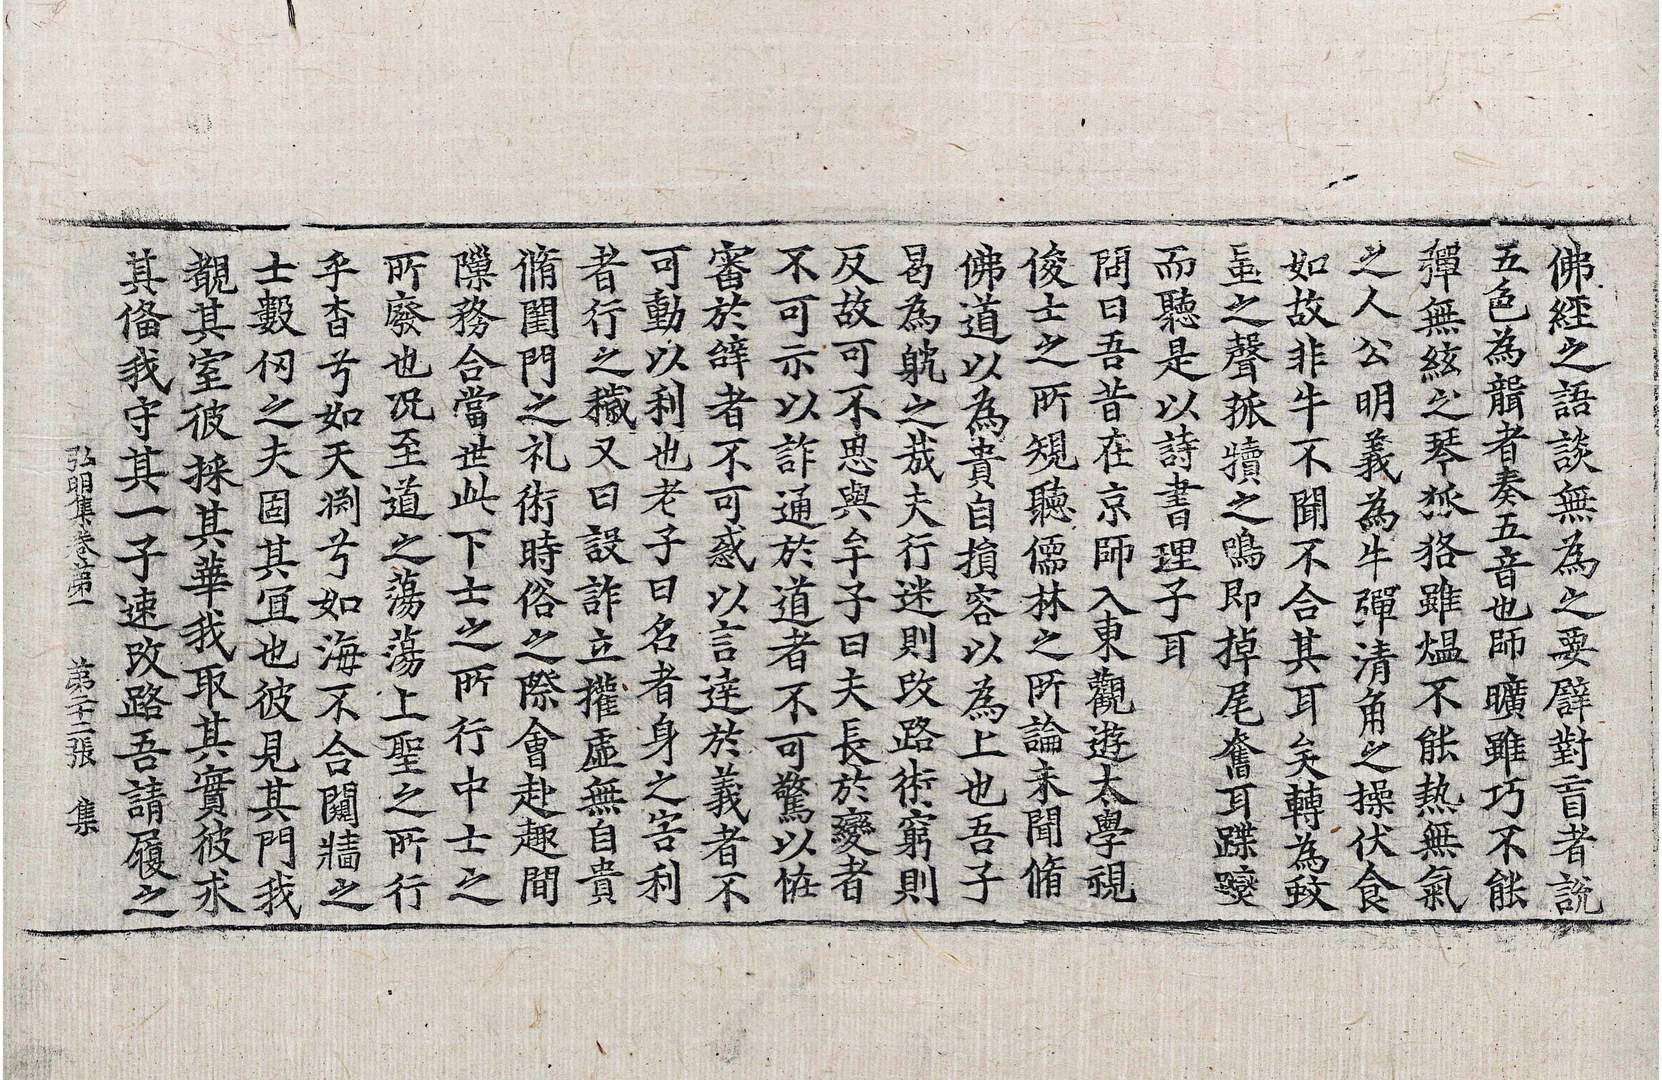 佛經之語談無爲之要譬對盲者說
五色爲聾者奏五音也師曠雖巧不能
彈無絃之琴狐狢雖熅不能熱無氣
之人公明義爲牛彈清角之操伏食
如故非牛不聞不合其耳矣轉爲蚊
虻之聲孤犢之鳴即掉尾奮耳蹀躞
而聽是以詩書理子耳
問曰吾昔在京師入東觀遊太學視
俊士之所規聽儒林之所論未聞脩
佛道以爲貴自損容以爲上也吾子
曷爲躭之哉夫行迷則改路術窮則
反故可不思與牟子曰夫長於變者
不可示以詐通於道者不可驚以恠
審於辝者不可惑以言達於義者不
可動以利也老子曰名者身之害利
者行之穢又曰設詐立權虛無自貴
脩閨門之礼術時俗之際會赴趣間
隟務合當世此下士之所行中士之
所廢也况至道之蕩蕩上聖之所行
乎杳兮如天渕兮如海不合闚牆之
士數仭之夫固其冝也彼見其門我
覩其室彼採其華我取其實彼求
其俻我守其一子速改路吾請履之
弘明集卷第一 第二十二張 集